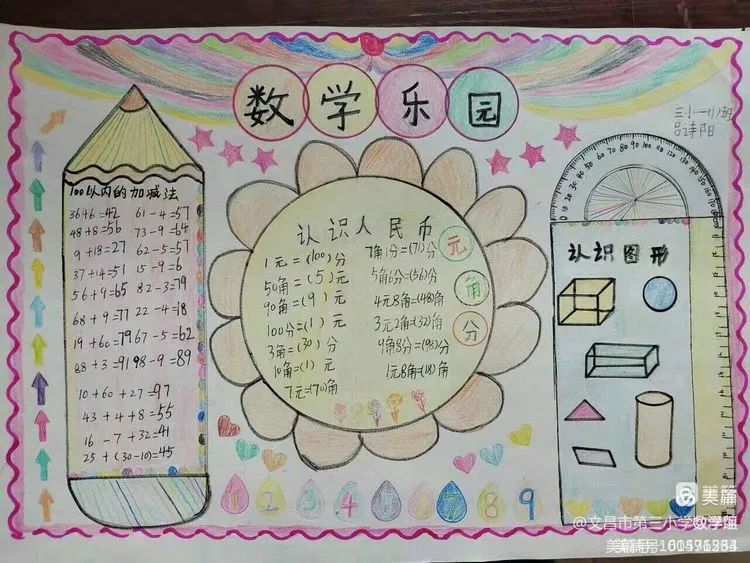 数学乐园
三小一(1)班
吕诗阳
100以内的加减法
36+6=42 61-4=57
48+8=56 73-9=64
9+18=27 62-5=57
37+14=51 15-9=6
56+9=65 82-3=79
68+9=77 22-4=18
19+60=79 67-5=62
88+3=91 98-9=89
10+60+27=97
43+4+8=55
16-7+32=41
25+(30-10)=45
认识人民币
1元=(100)分 7角1分=(71)分
50角=(5)元 5角6分=(56)分
90角=(9)元 4元8角=(48)角
100分=(1)元 3元2角=(32)角
3角=(30)分 9角8分=(98)分
10角=(1)元 1元8角=(18)角
7元=(70)角
元
角
分
认识图形
0 10 20 30 40 50 60 70 80 90
1 2 3 4 5 6 7 8 9
美篇
@文昌市第三小学数学组